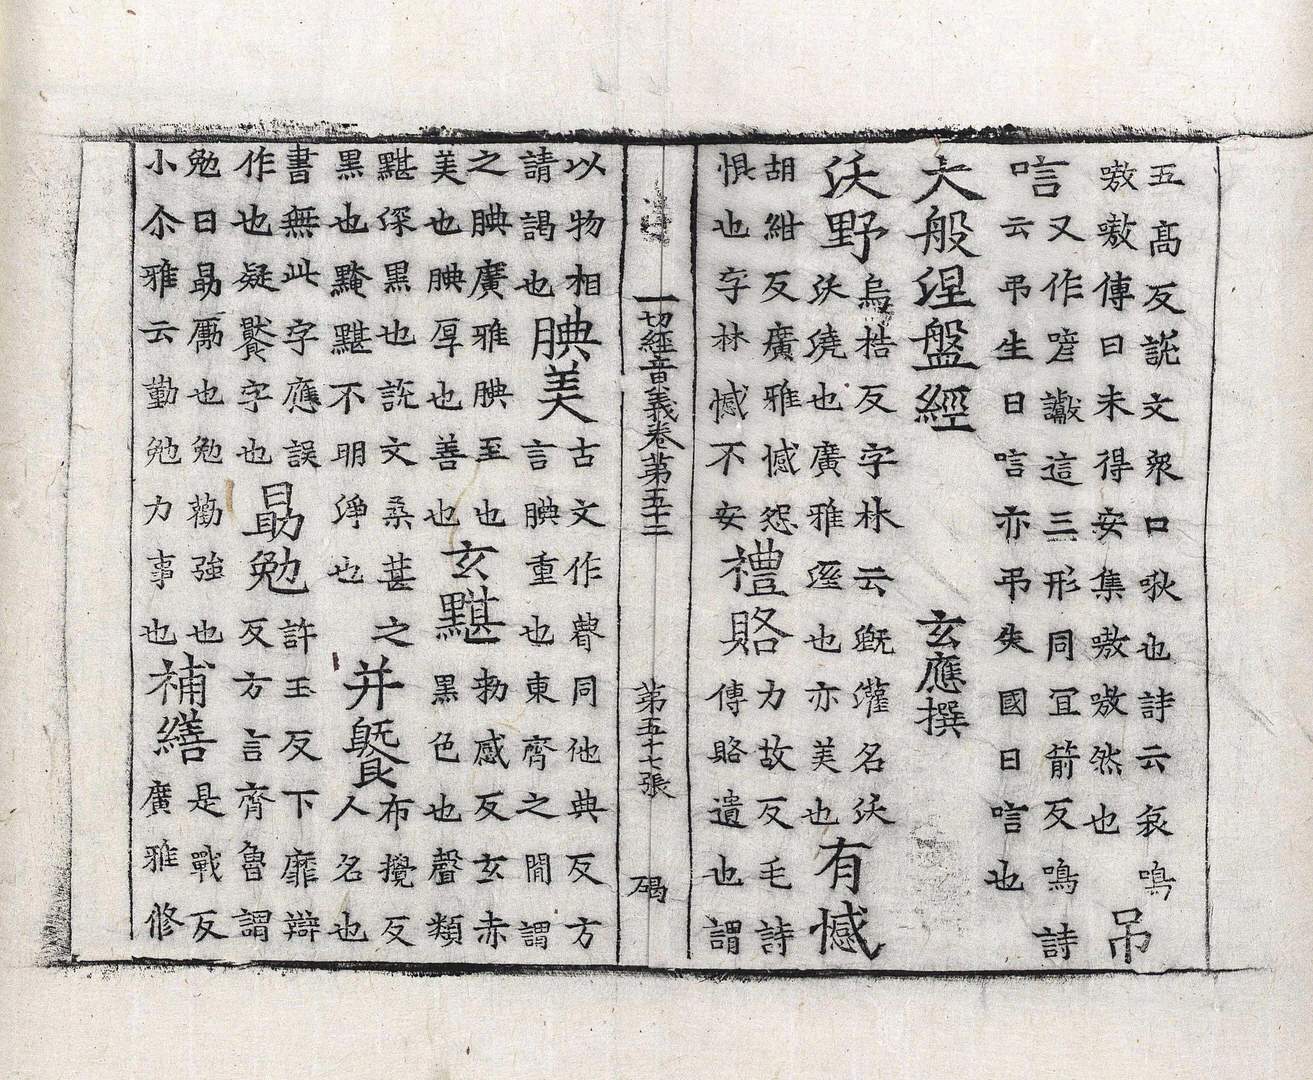 五髙反說文衆口㗖也詩云哀鳴
嗷嗷傳曰未得安集嗷嗷然也
吊
唁
又作喭讞這三形同冝箭反鳴詩
云吊生曰唁亦吊失國曰唁也
大般涅盤經 玄應撰
沃野
烏梏反字林云旣灌名沃
沃澆也廣雅溼也亦美也
有憾
胡紺反廣雅憾怨
惧也字林憾不安
禮賂
力故反毛詩
傳賂遺也謂
一切經音義卷第五十二 第五十七張 碣
以物相
請謁也
腆美
古文作同他典反方
言腆重也東齊之間謂
之腆廣雅腆至也
美也腆厚也善也
玄黮
勑感反玄赤
黒色也聲類
黮深黒也說文桑葚之
黒也黤黮不明淨也
并
布攪反
人名也
書無此字應誤
作也疑字也
勗勉
許玉反下靡辯
反方言齊魯謂
勉曰勗勵也勉勸強也
小尒雅云勤勉力事也
補繕
是戰反
廣雅修